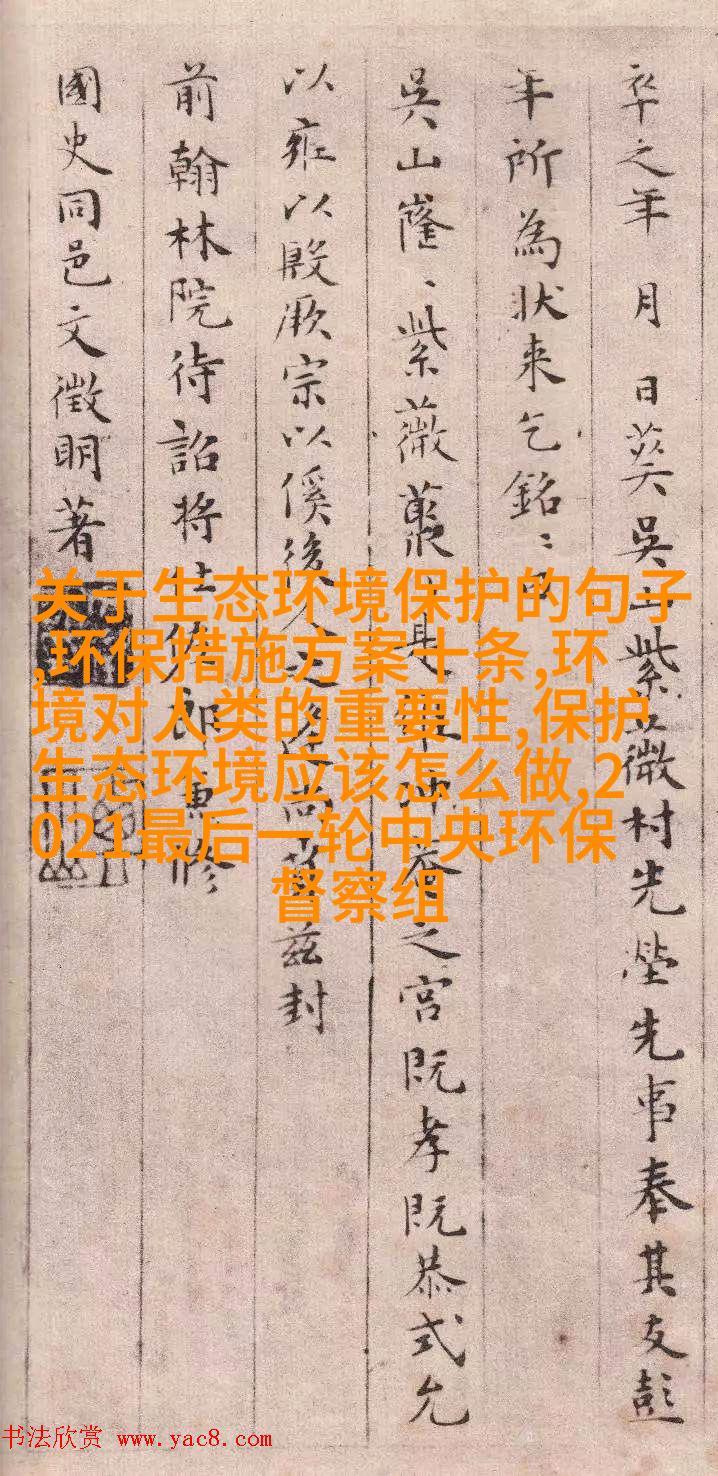 卒之年月日葬吳山紫薇村先塋先事奉其友彭
年所為狀来乞銘〻曰
吳山嶐〻紫薇叢
之宮既孝既恭式允
以雍以殷厥宗以傒後人
茲封
前翰林院待詔將仕佐郎兼修
國史同邑文徵明著
关于生态环境保护的句子
,环保措施方案十条,环
境对人类的重要性,保护
生态环境应该怎么做,2
021最后一轮中央环保
督察组
书法欣赏 www.yac8.com